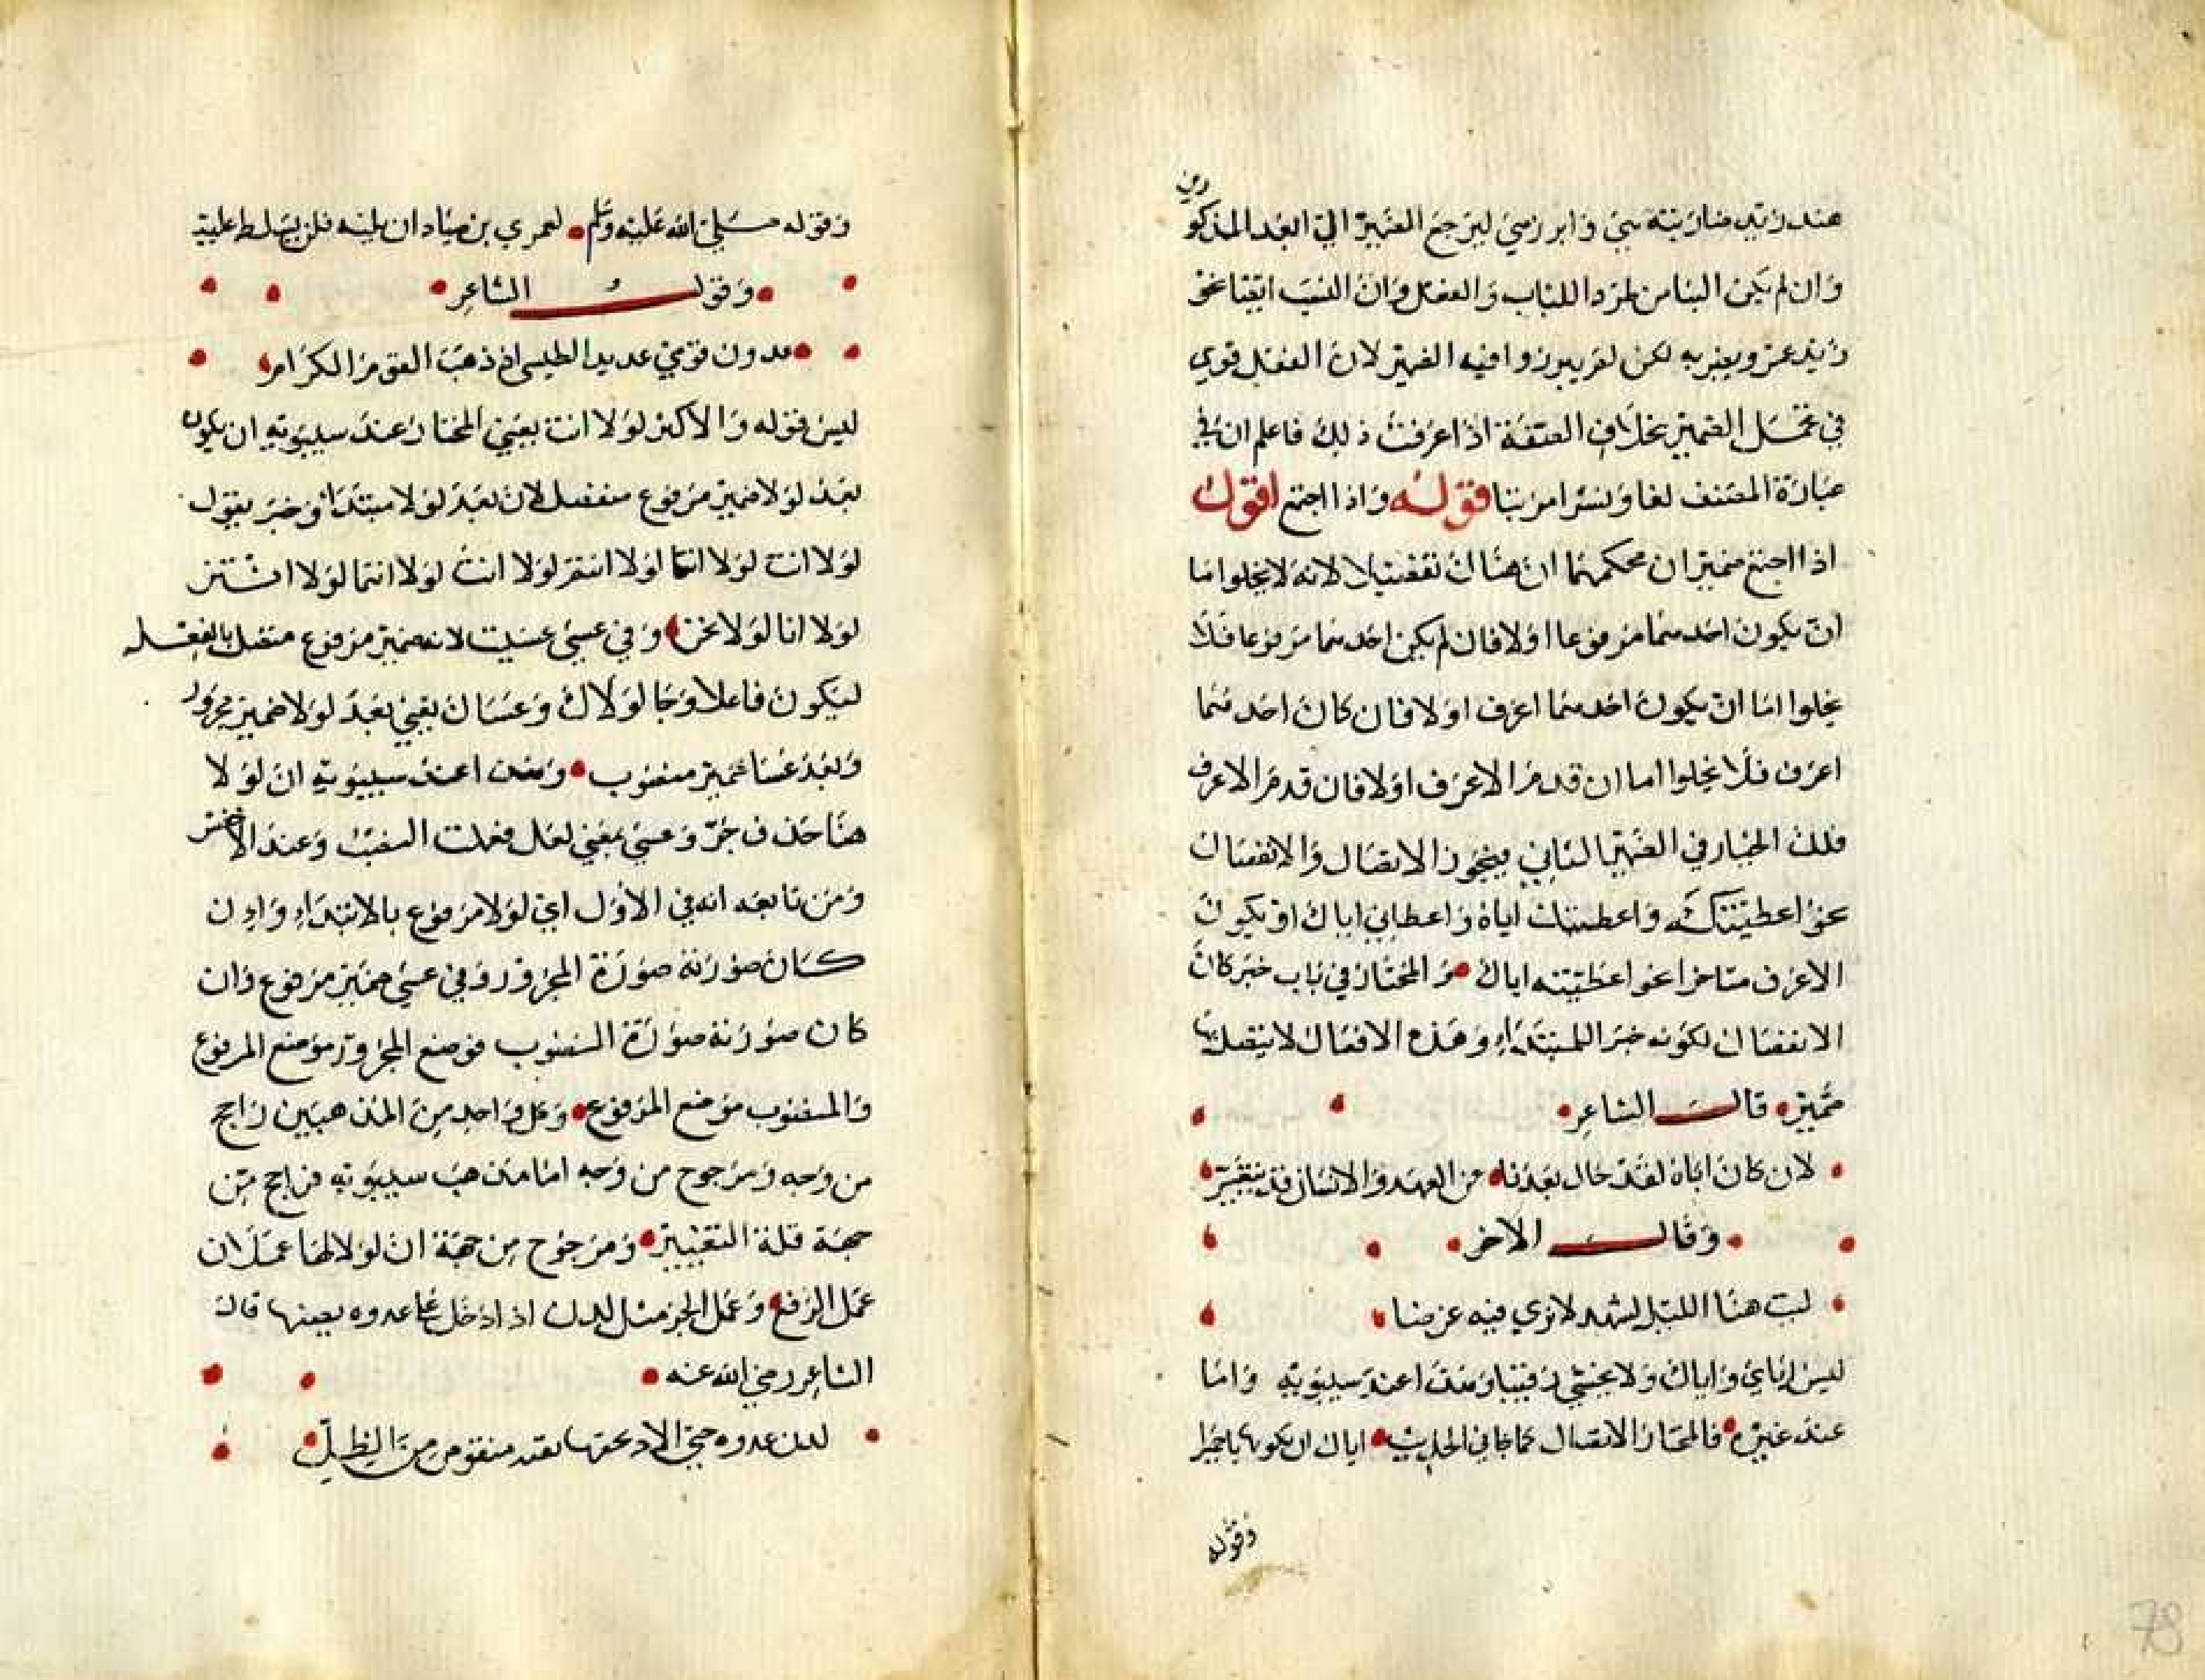 هند زيد ضاربته هي وابرزهي ليرجع الضمير الى البعد المذكورين
وان لم يكن البنا من طرد اللباب والفعل وان النسب ايضا نحو
زيد عمرو يضربه لكن لم يبرزوا فيه الضمير لان الفعل قوي
في تحمل الضمير بخلاف الصفة اذا عرفت ذلك فاعلم ان في
عبارة المصنف لفا ونشرا مرتبا قوله واذا اجتمع اقول
اذا اجتمع ضميران محكمهما ان هنا ان تفصيلا لانه لا يخلوا اما
ان يكون احدهما مرفوعا اولا فان لم يكن احدهما مرفوعا فلا
يخلوا اما ان يكون احدهما اعرف اولا فان كان احدهما
اعرف فلا يخلوا اما ان قدم الاعرف اولا فان قدم الاعرف
فلك الخيار في الضمير الثاني فيجوز الاتصال والانفصال
نحو اعطيتكه واعطيتك اياه واعطاني اياك او يكون
الاعرف متاخرا نحو اعطيته اياك والمختار في باب خبر كان
الانفصال لكونه خبرا للمبتداء وهذه الافعال لا يتصل بها
ضمير قال الشاعر
لان كان اياه لقد حال بعدنا عن العهد والانسان قد يتغير
وقال الاخر
ليت هذا الليل شهر لا نري فيه عرضا
ليس اياي واياك ولا نخشي رقيبا وهذا عند سيبويه واما
عند غيره فالمختار الاتصال كما جا في الحديث اياك ان تكونها يا حميرا
وقوله
وقوله صلى الله عليه وسلم لعمري بن صياد ان يكنه فلن يسلط عليه
وقول الشاعر
عددت قومي عديد الطيس اذ ذهب القوم الكرام
ليس قوله والاكثر لولا انت يعني المختار عند سيبويه ان يكون
بعد لولا ضمير مرفوع منفصل لان بعد لولا مبتدا وخبر يقول
لولا انت لولا انتما لولا انتم لولا انت لولا انتما لولا انتن
لولا انا لولا نحن وفي عسى عسيت لانه ضمير مرفوع متصل بالفعل
ليكون فاعلا وجا لولاك وعساك يعني بعد لولا ضمير مجرور
وبعد عسا ضمير منصوب وهذا عند سيبويه ان لولا
هنا حرف جر وعسى بمعني لعل فعملت النصب وعند الاخفش
ومن تابعه انه في الاول اي لولا مرفوع بالابتداء وان
كان صورته صورة المجرور وفي عسى ضمير مرفوع وان
كان صورته صورة المنصوب فوضع المجرور موضع المرفوع
والمنصوب موضع المرفوع وكل واحد من المذهبين راجح
من وجه ومرجوح من وجه اما مذهب سيبويه فراجح من
جهة قلة التغيير ومرجوح من جهة ان لولا لها عملان
عمل الرفع وعمل الجر مثل لدن اذ ادخل على غدوه يعينها قال
الشاعر رضي الله عنه
لدن غدوه حتى الاد بخفها بقية منقوص من الظل